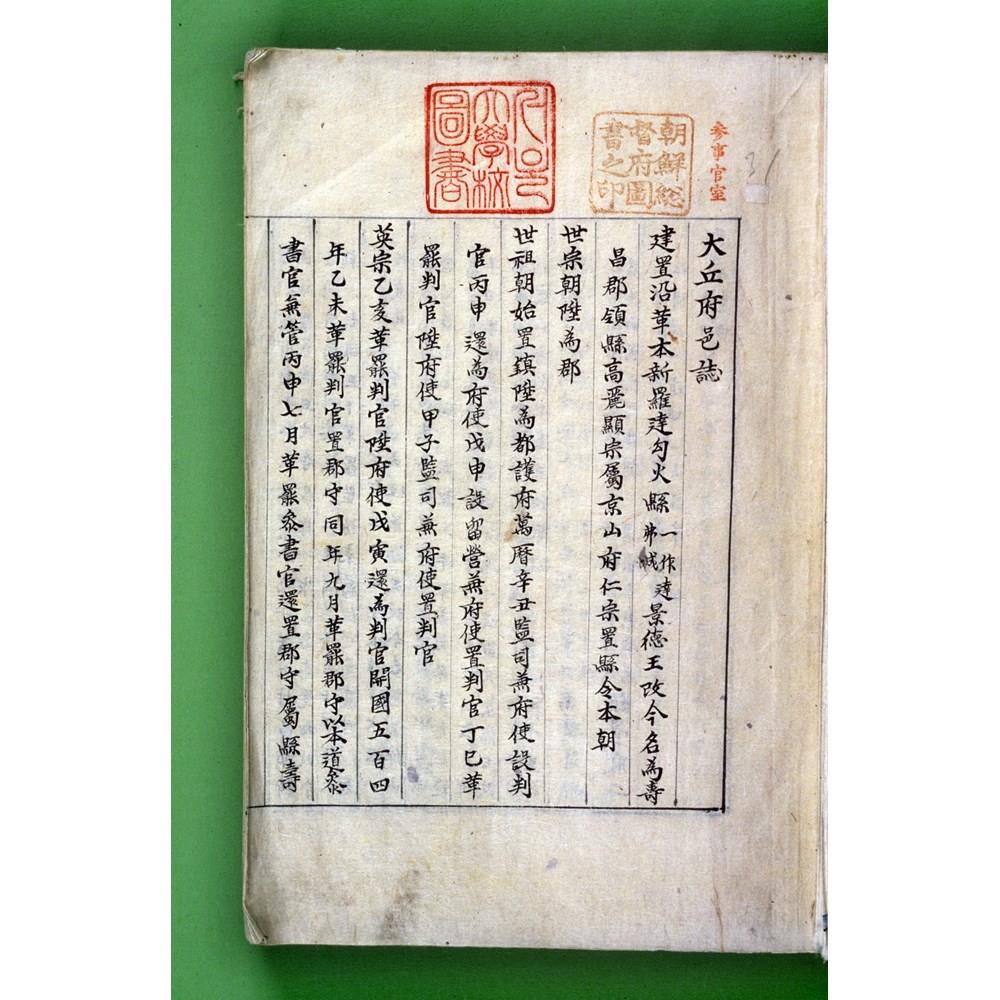 参事官室
朝鮮総
督府圖
書之印
大學校
圖書
31
大丘府邑誌
建置沿革本新羅達勾火縣一作達弗城景德王改今名為壽
昌郡領縣高麗顯宗屬京山府仁宗置縣令本朝
世宗朝陞為郡
世祖朝始置鎮陞為都護府萬曆辛丑監司兼府使設判
官丙申還為府使戊申設留營兼府使置判官丁巳革
罷判官陞府使甲子監司兼府使置判官
英宗乙亥革罷判官陞府使戊寅還為判官開國五百四
年乙未革罷判官置郡守同年九月革罷郡守以本道叅
書官兼管丙申七月革罷叅書官還置郡守屬縣壽